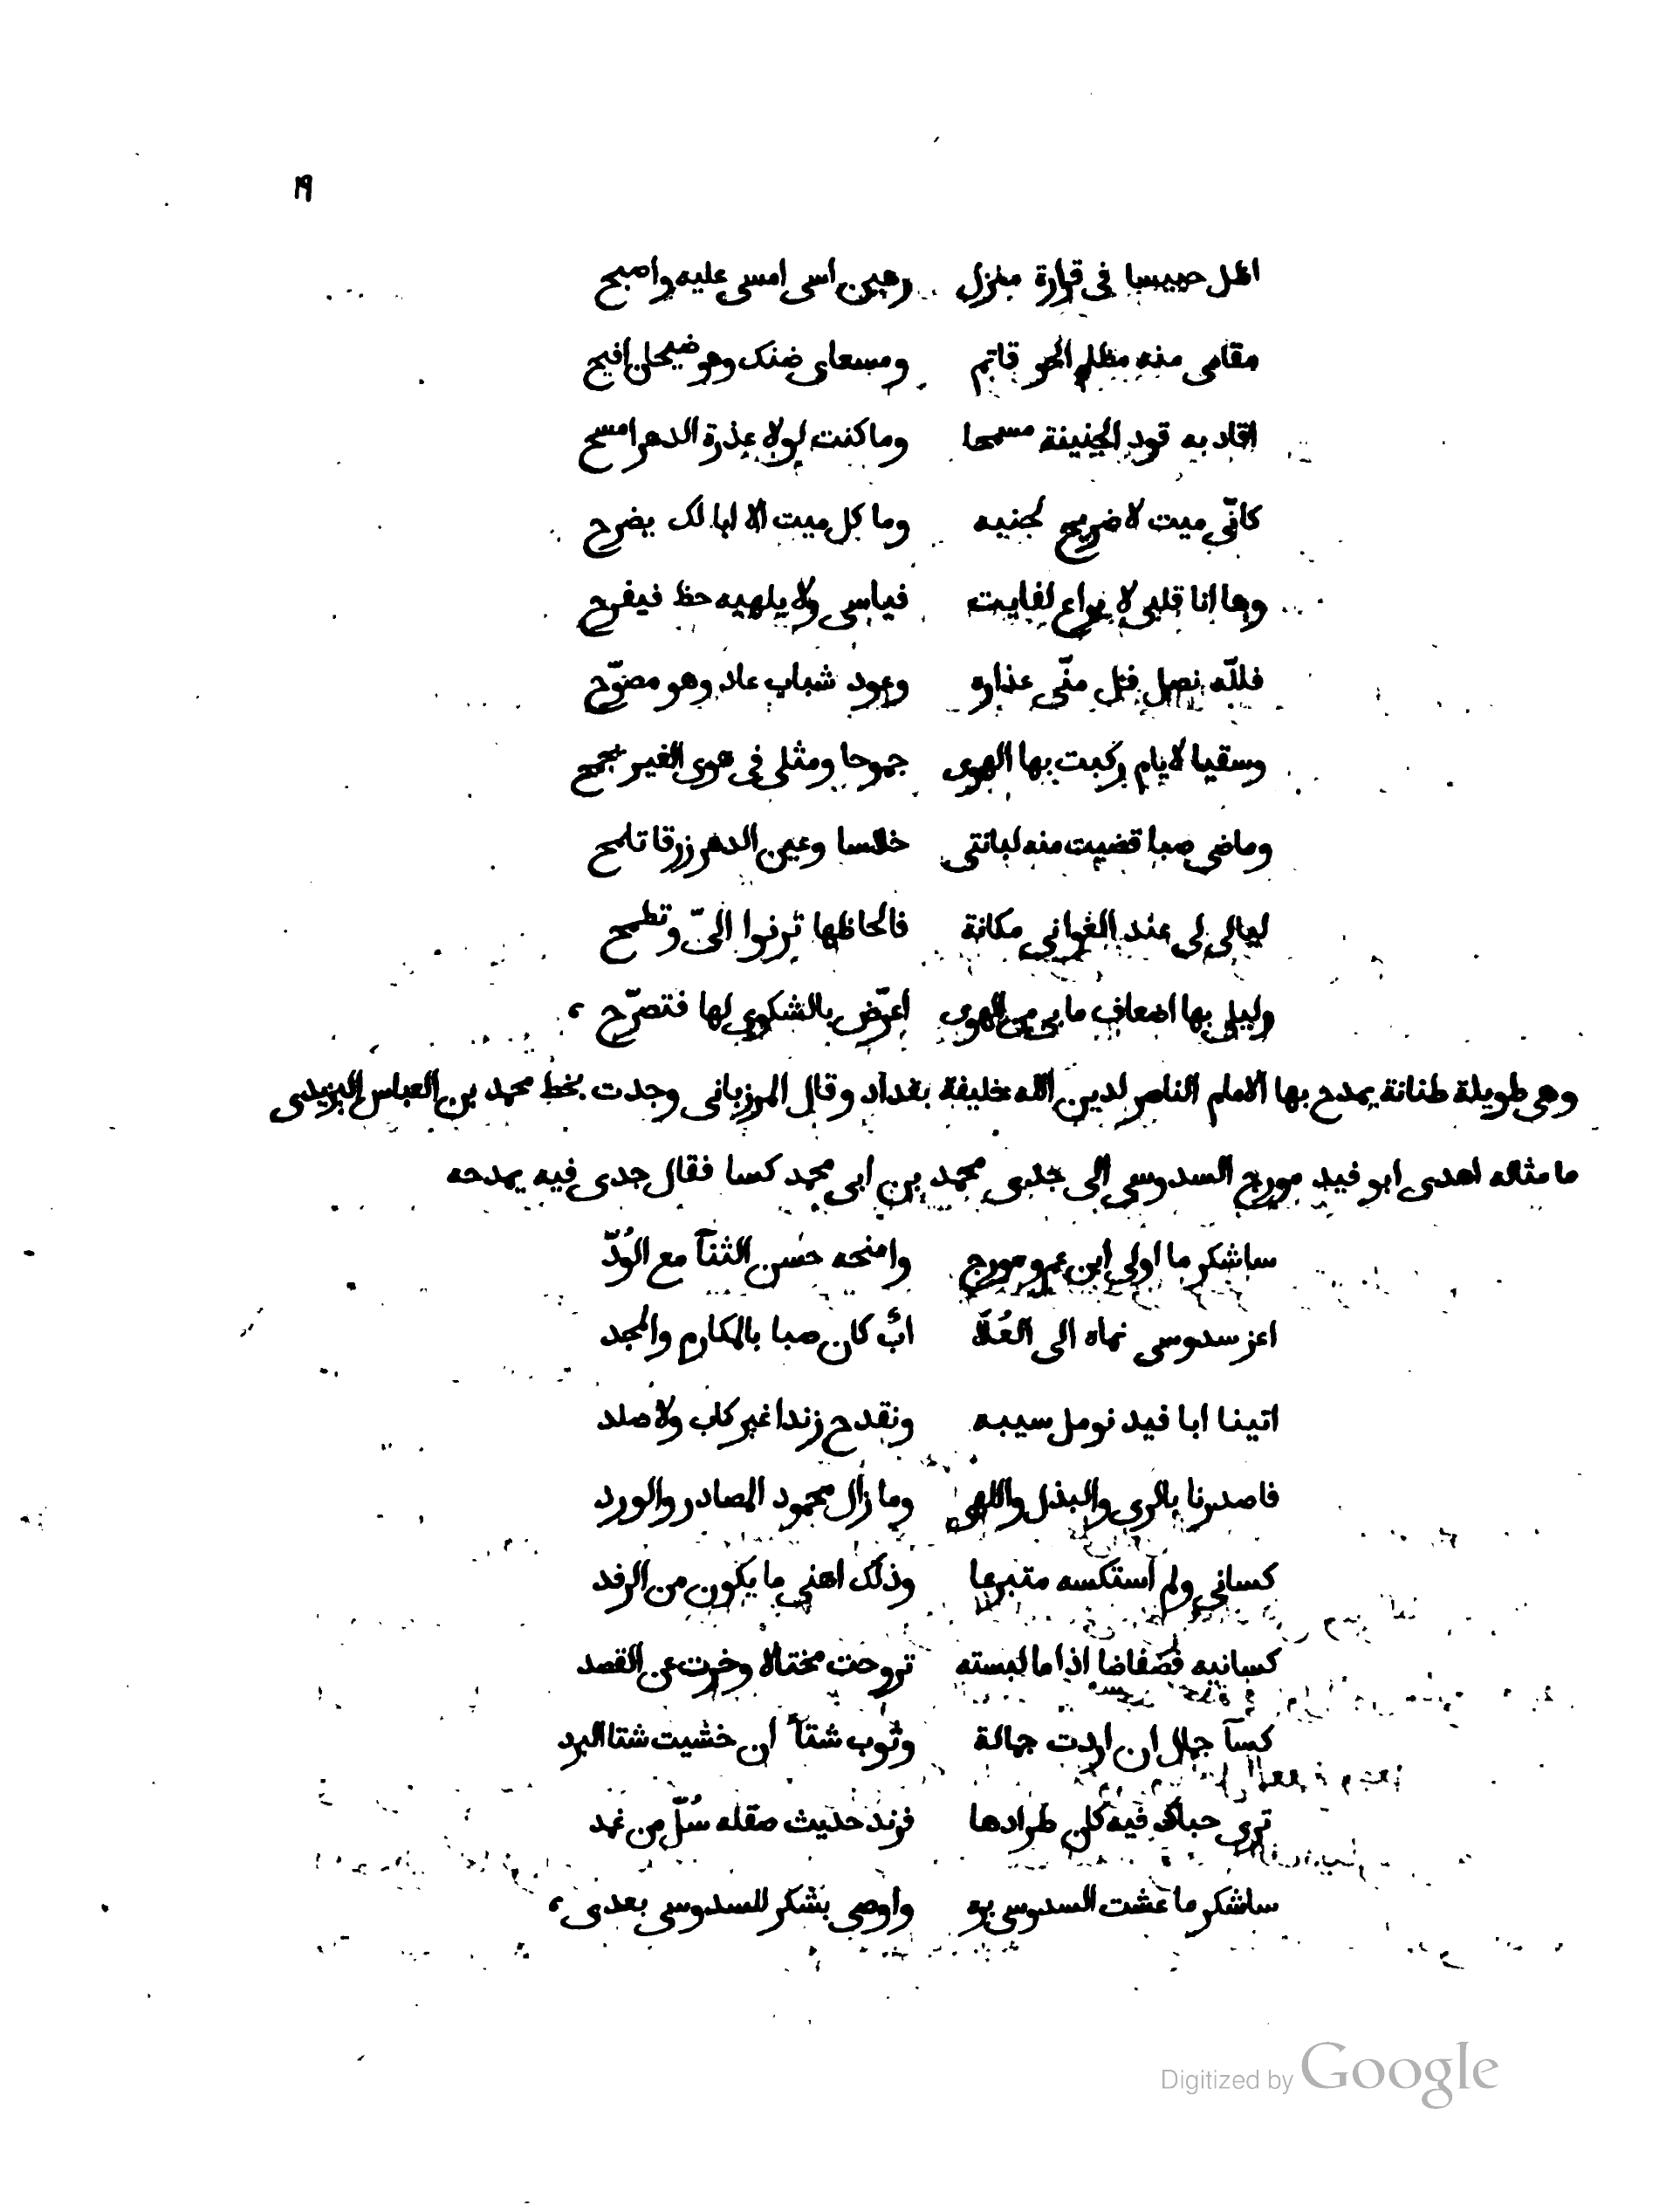 ١٩
اظل حبيسا فى قرارة منزل رهين اسى امسى عليه واصبح
مقامى منه مظلم الجو قاتم ومسعاى ضنك وهو ضيحان افيح
اقاد به قود الجنيبة مسمحا وما كنت لولا عذرة الدهر امسح
كانّى ميت لا ضريح لجنبه وما كل ميت لا ابا لك يضرح
وها انا قلبى لا يراع لفايت فياسى ولا يلهيه حظ فيفرح
فللّه نصل فل منّى عذاره وعود شباب عاد وهو مصوّح
وسقيا لايام ركبت بها الهوى جموحا ومثلى فى هوى الغير يجمح
وماضى صبا قضيت منه لبانتى خلاسا وعين الدهر زرقا تلمح
ليالى لى عند الغوانى مكانة فالحاظها ترنوا الىّ وتطمح
وليلى بها اضعاف ما بى من الهوى اعرّض بالشكوى لها فتصرّح ،
وهى طويلة طنانة يمدح بها الامام الناصر لدين الله خليفة بغداد وقال المرزبانى وجدت بخط محمد بن العباس اليزيدى
ما مثاله اهدى ابو فيد مورج السدوسى الى جدى محمد بن ابى محمد كسا فقال جدى فيه يمدحه
ساشكر ما اولى ابن عمرو مورج وامنحه حسن الثنآ مع الوُدّ
اعز سدوسى نماه الى العُلآ ابٌ كان صبا بالمكارم والمجد
اتينا ابا فيد نومل سيبه ونقدح زندا غير كاب ولا صلد
فاصدرنا بالرى والبذل واللهى وما زال محمود المصادر والورد
كسانى ولم استكسه متبرعا وذلك اهنى ما يكون من الرفد
كسانيه فضفاضا اذا ما لبسته تروحت مختالا وخرت عن القصد
كسآ جمال ان اردت جمالة وثوب شتآ ان خشيت شتا البرد
ترى حباكا فيه كان طرادها فرند حديث صقله سُلّ من غمد
ساشكر ما عشت السدوسى بره واوصى بشكر للسدوسى بعدى ،
Digitized by Google